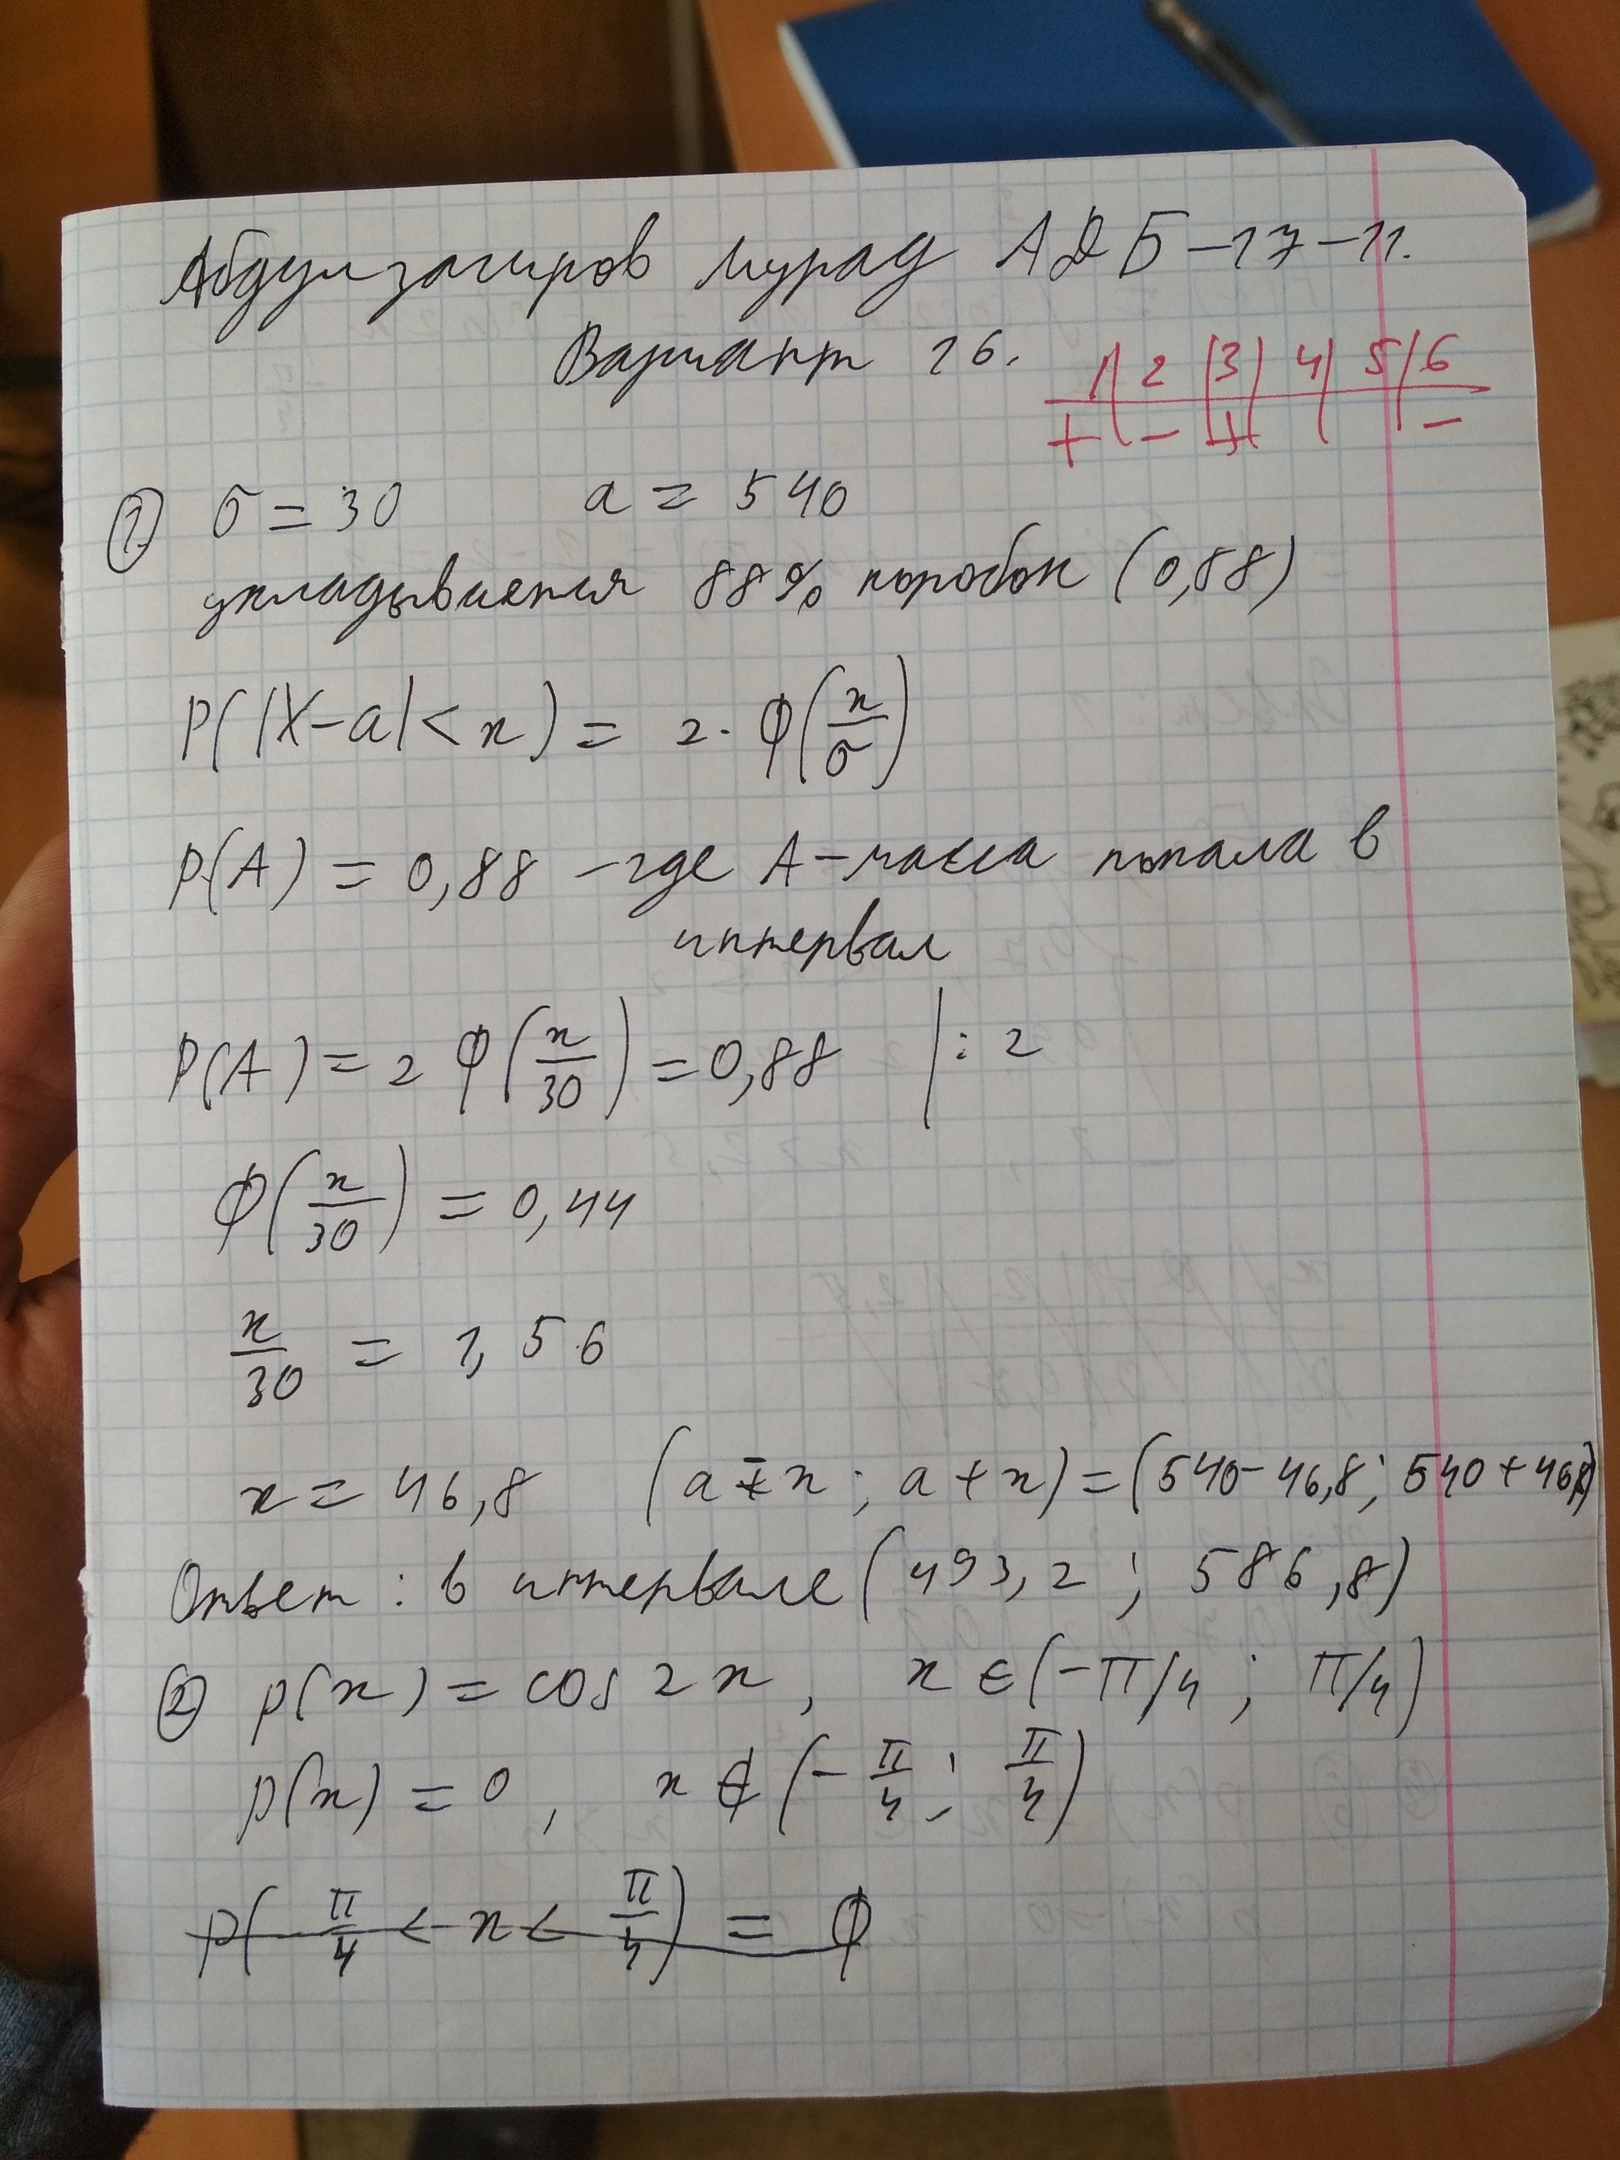 Абдулзагиров Мурад АДБ-17-11.
Вариант 16.
1 | 2 | 3 | 4 | 5 | 6
+ | - | + | | | -
① σ = 30 a = 540
укладывается 88% коробок (0,88)
P(|X-a|< x) = 2 · Φ(x/σ)
P(A) = 0,88 - где A - масса попала в
интервал
P(A) = 2 Φ(x/30) = 0,88 | : 2
Φ(x/30) = 0,44
x/30 = 1,56
x = 46,8 (a - x ; a + x) = (540 - 46,8 ; 540 + 46,8)
Ответ : в интервале (493,2 ; 586,8)
② p(x) = cos 2x , x ∈ (-π/4 ; π/4)
p(x) = 0 , x ∉ (-π/4 ; π/4)
P(π/4 < x < π/4) = Φ